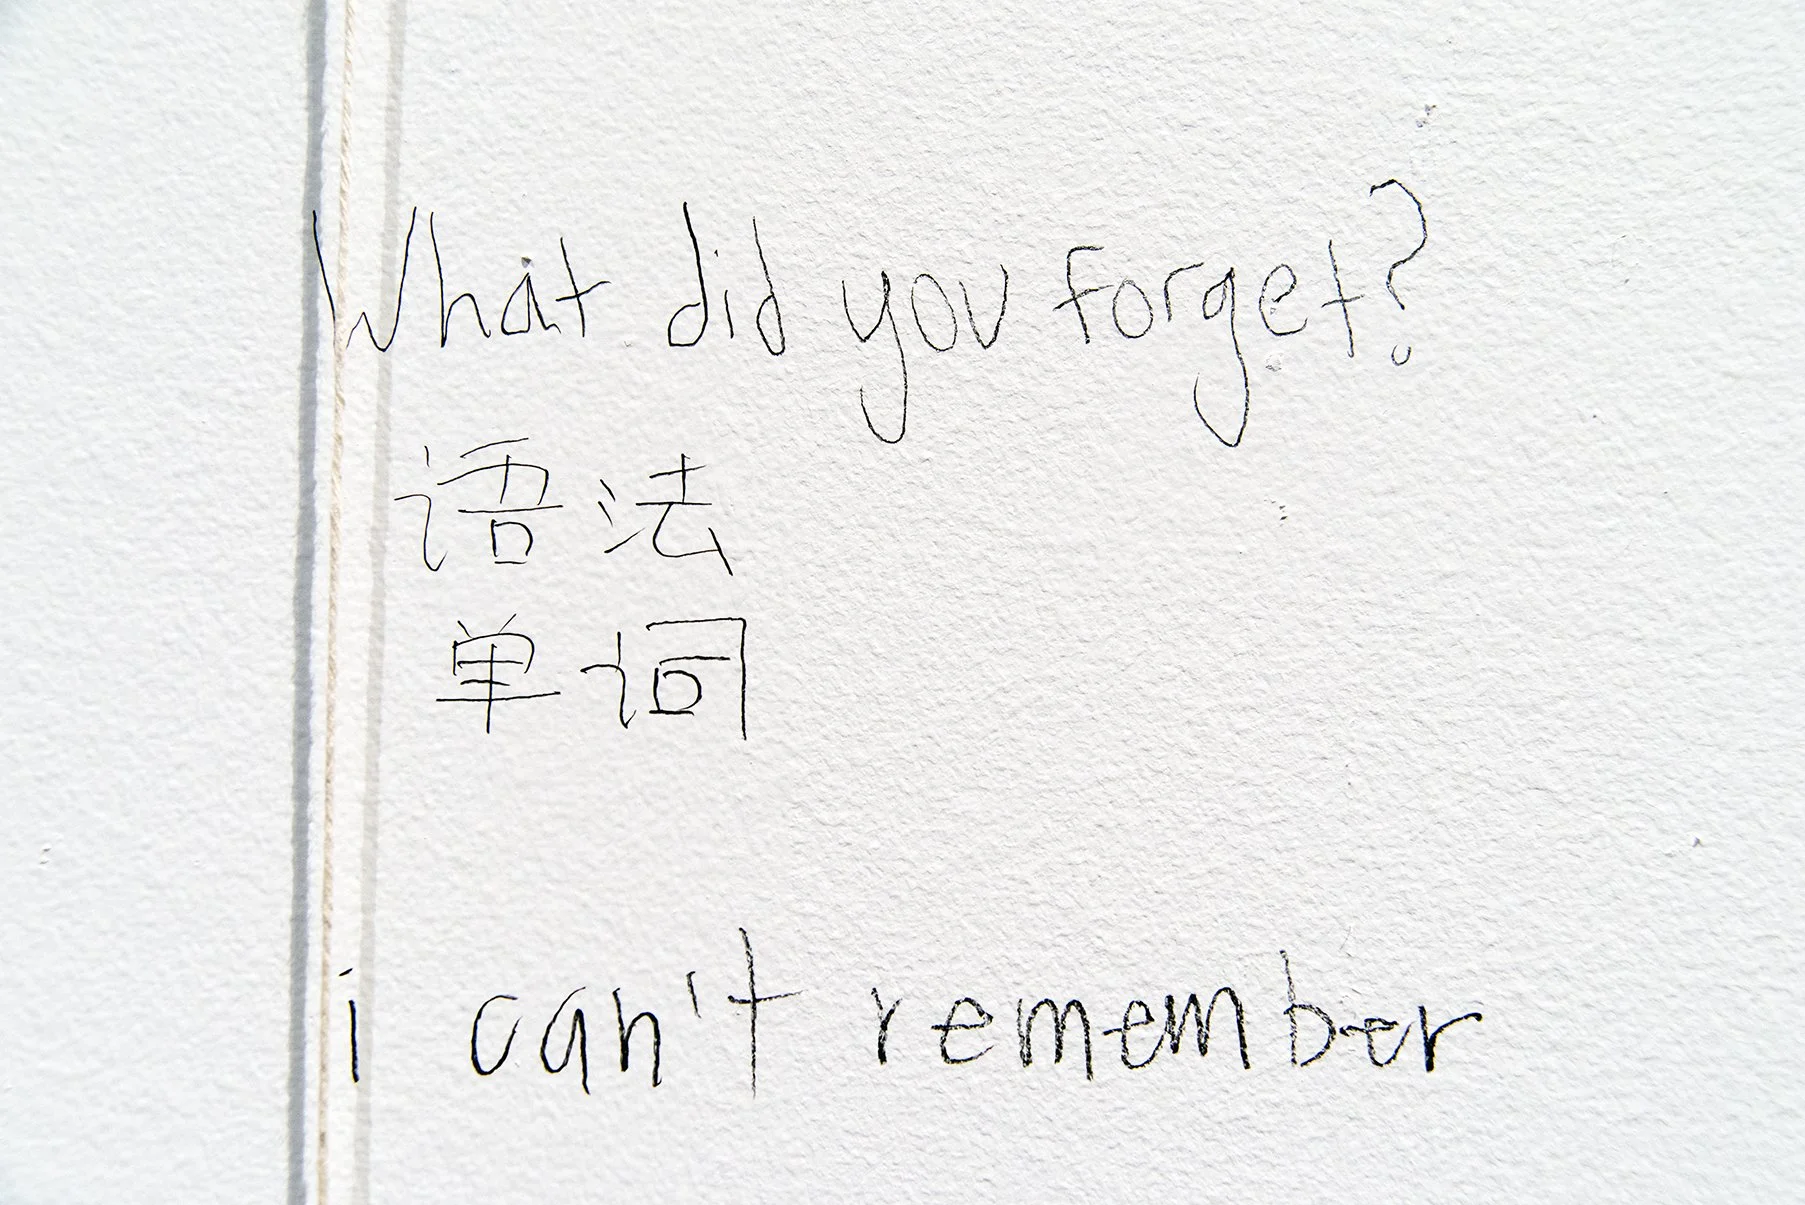 What did you forget?
语法
单词
i can't remember